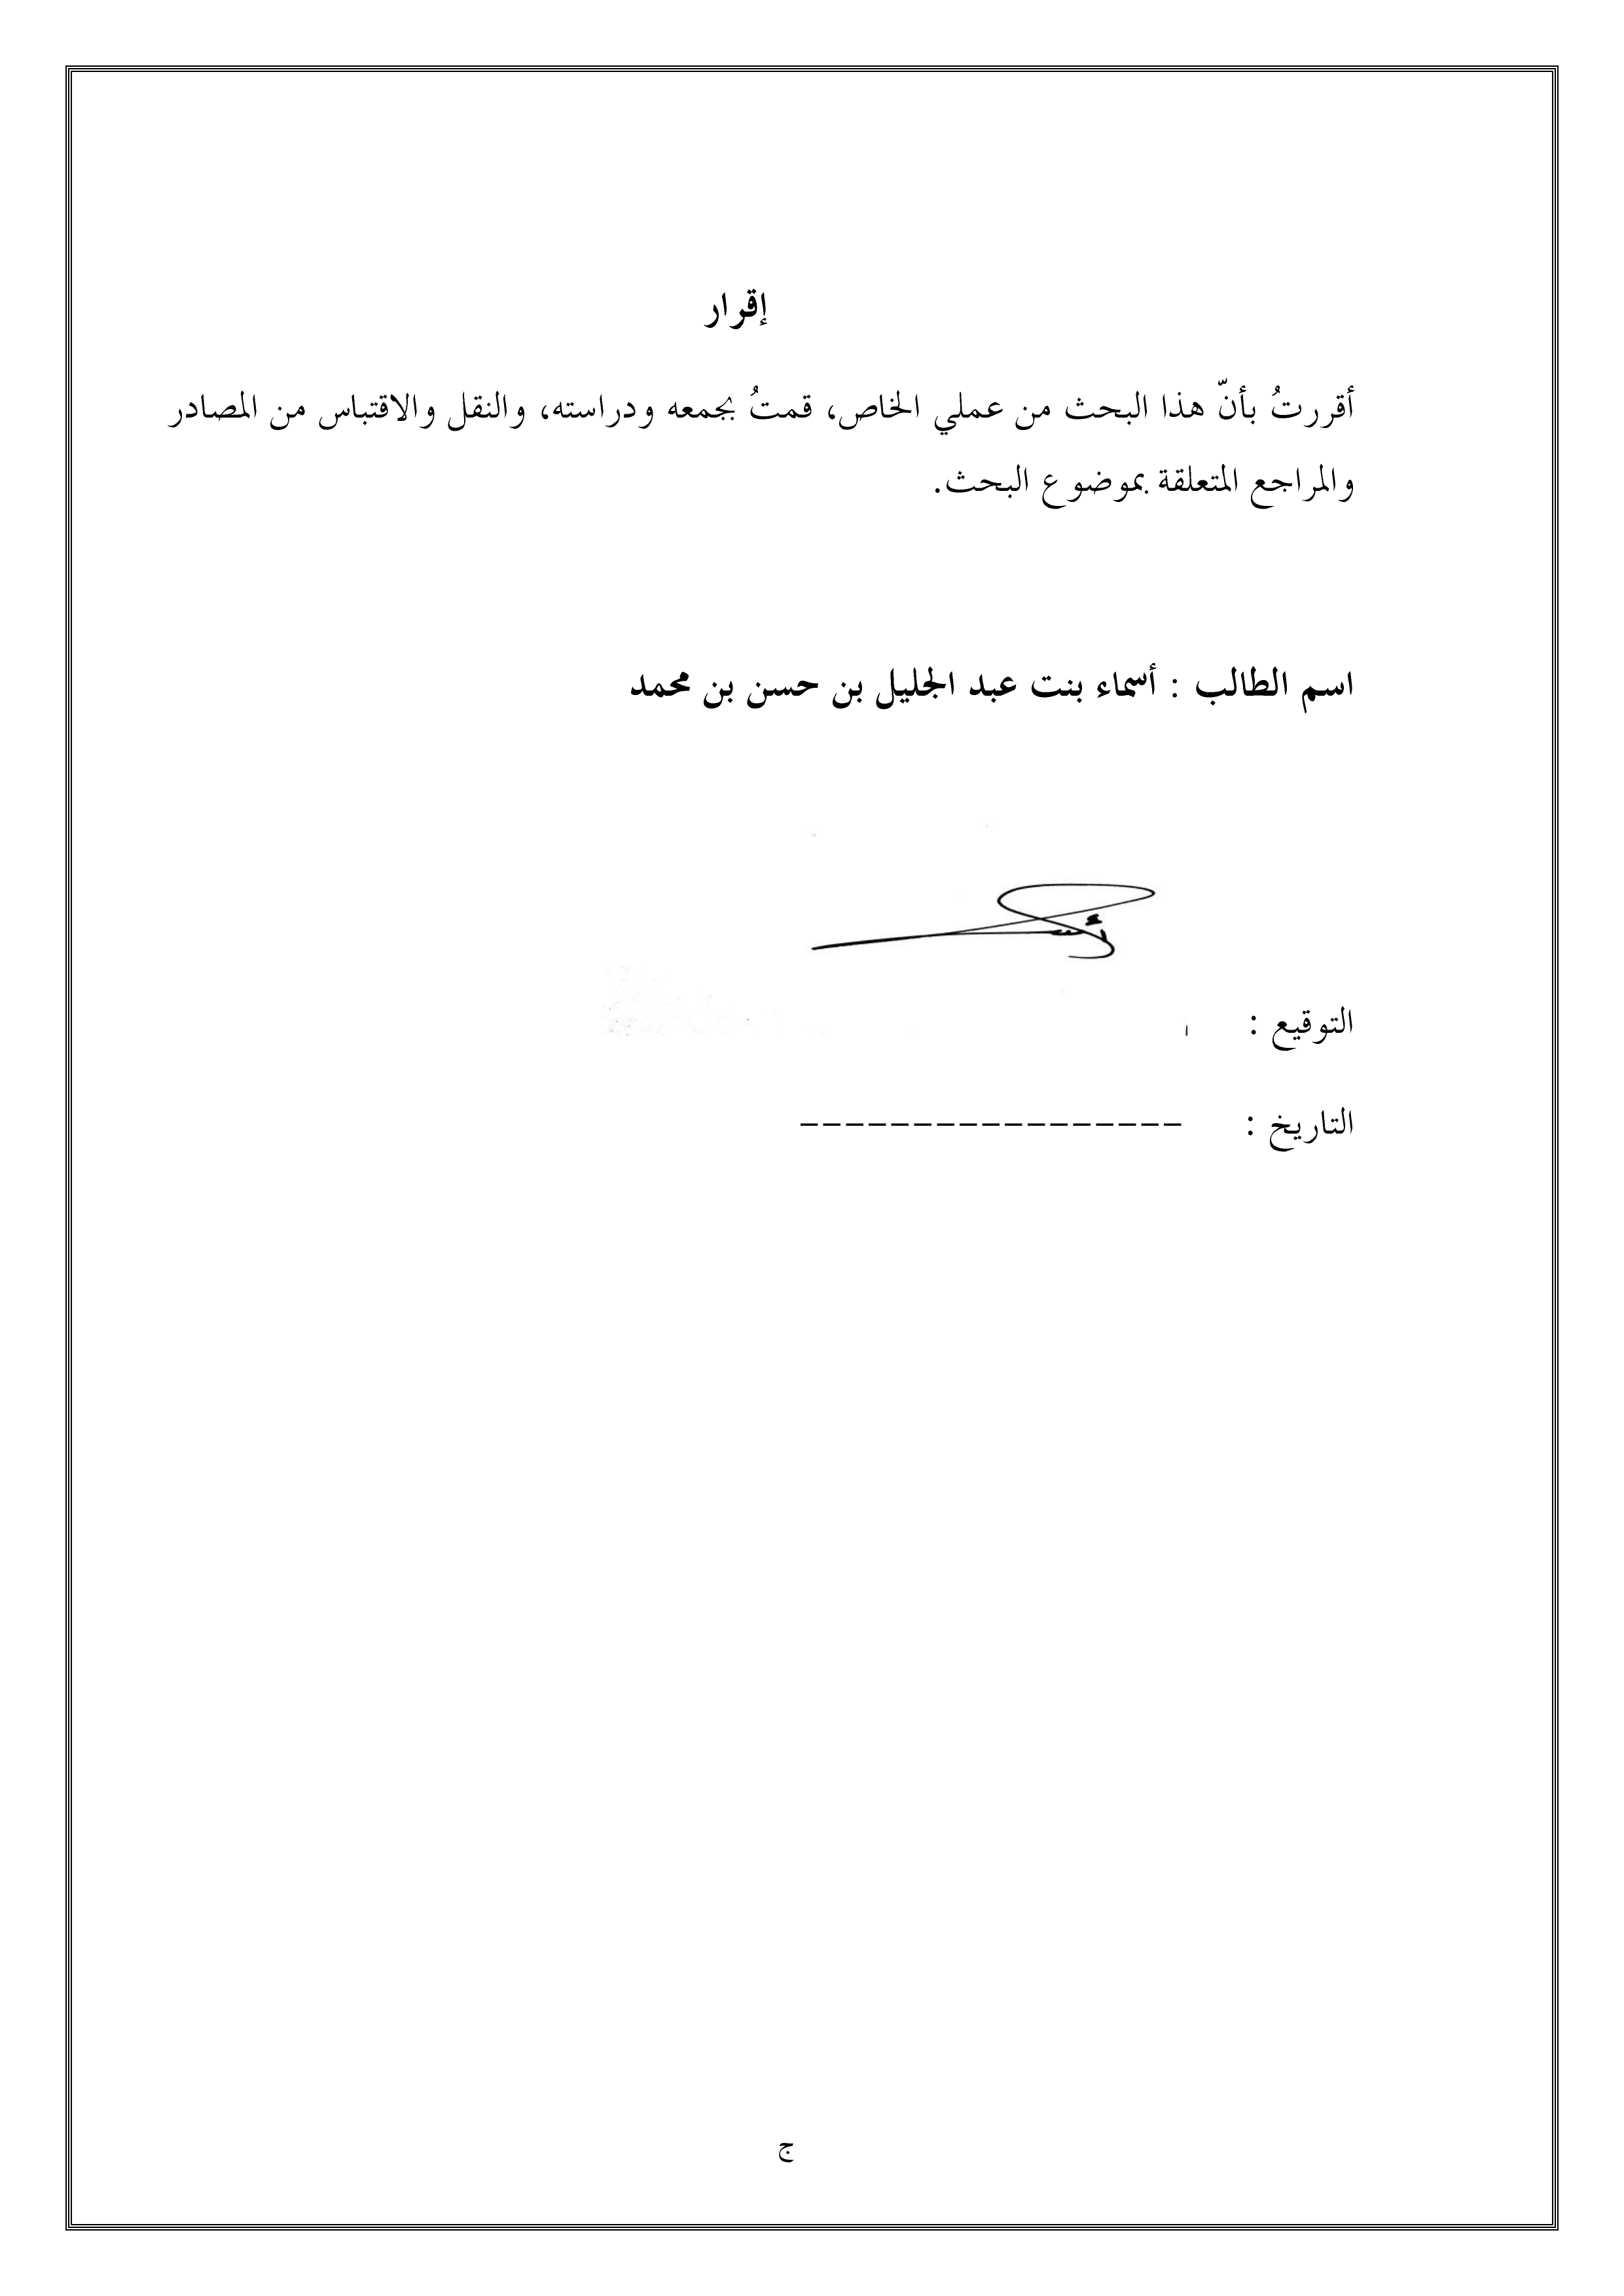 إقرار
أقررتُ بأنّ هذا البحث من عملي الخاص، قمتُ بجمعه ودراسته، والنقل والاقتباس من المصادر
والمراجع المتعلقة بموضوع البحث.
اسم الطالب : أسماء بنت عبد الجليل بن حسن بن محمد
التوقيع :
التاريخ : -----------------
ج